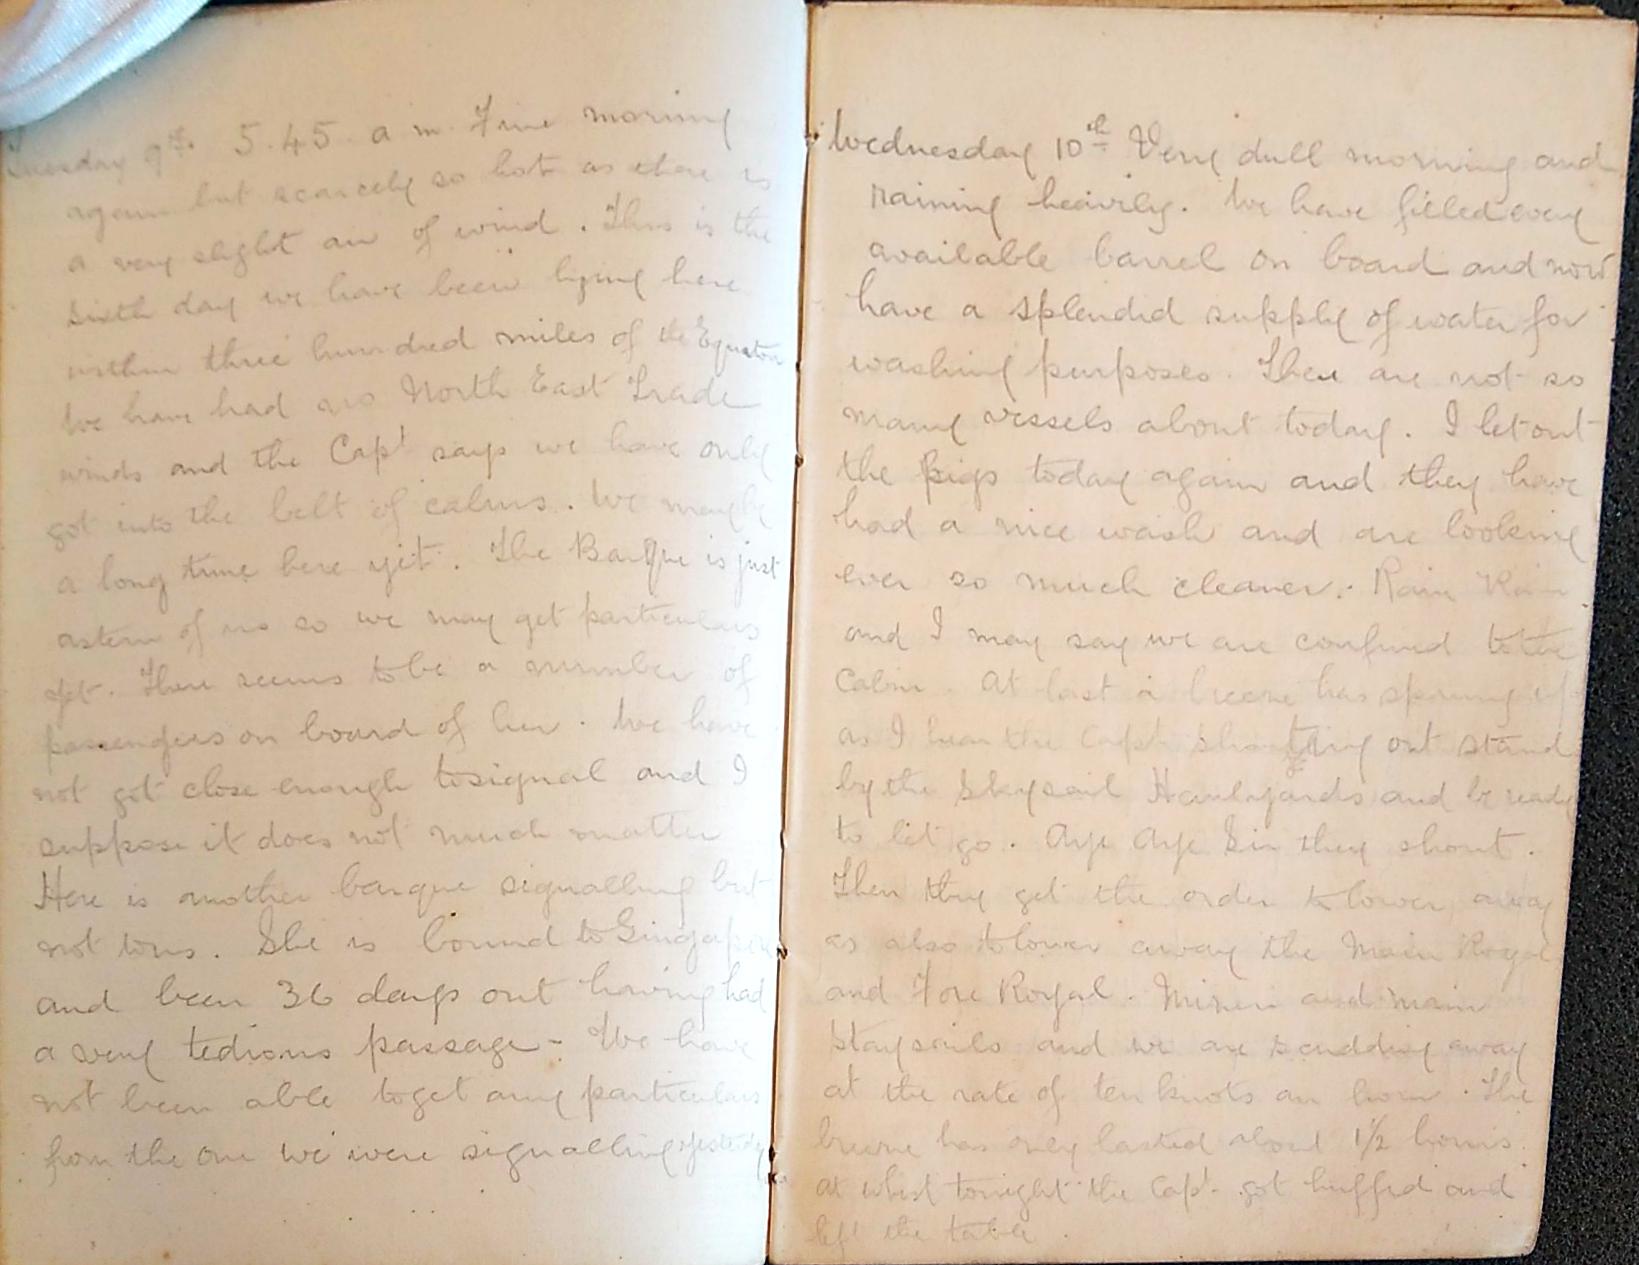 Tuesday 9th. 5.45 a m. Fine morning
again but scarcely so hot as there is
a very slight air of wind. This is the
sixth day we have been lying here
within three hundred miles of the Equator
We have had no North East Trade
winds and the Capt says we have only
got into the belt of calms. We may be
a long time here yet. The Barque is just
astern of us so we may get particulars
yet. There seems to be a number of
passengers on board of her. We have
not got close enough to signal and I
suppose it does not much matter
Here is another barque signalling but
not to us. She is bound to Singapore
and been 36 days out having had
a very tedious passage - We have
not been able to get any particulars
from the one we were signalling yesterday
Wednesday 10th Very dull morning and
raining heavily. We have filled every
available barrel on board and now
have a splendid supply of water for
washing purposes. There are not so
many vessels about today. I let out
the pigs today again and they have
had a nice wash and are looking
ever so much cleaner. Rain Rain
and I may say we are confined to the
Cabin. At last a breeze has sprung up
as I hear the Capt shouting out stand
by the Skysail Haulyards and be ready
to let go. Aye Aye Sir they shout.
Then they get the order to lower away
as also to lower away the Main Royal
and Fore Royal. Mizen and main
Staysails and we are scudding away
at the rate of ten knots an hour. The
breeze has only lasted about 1½ hours.
at whist tonight the Capt. got huffed and
left the table.